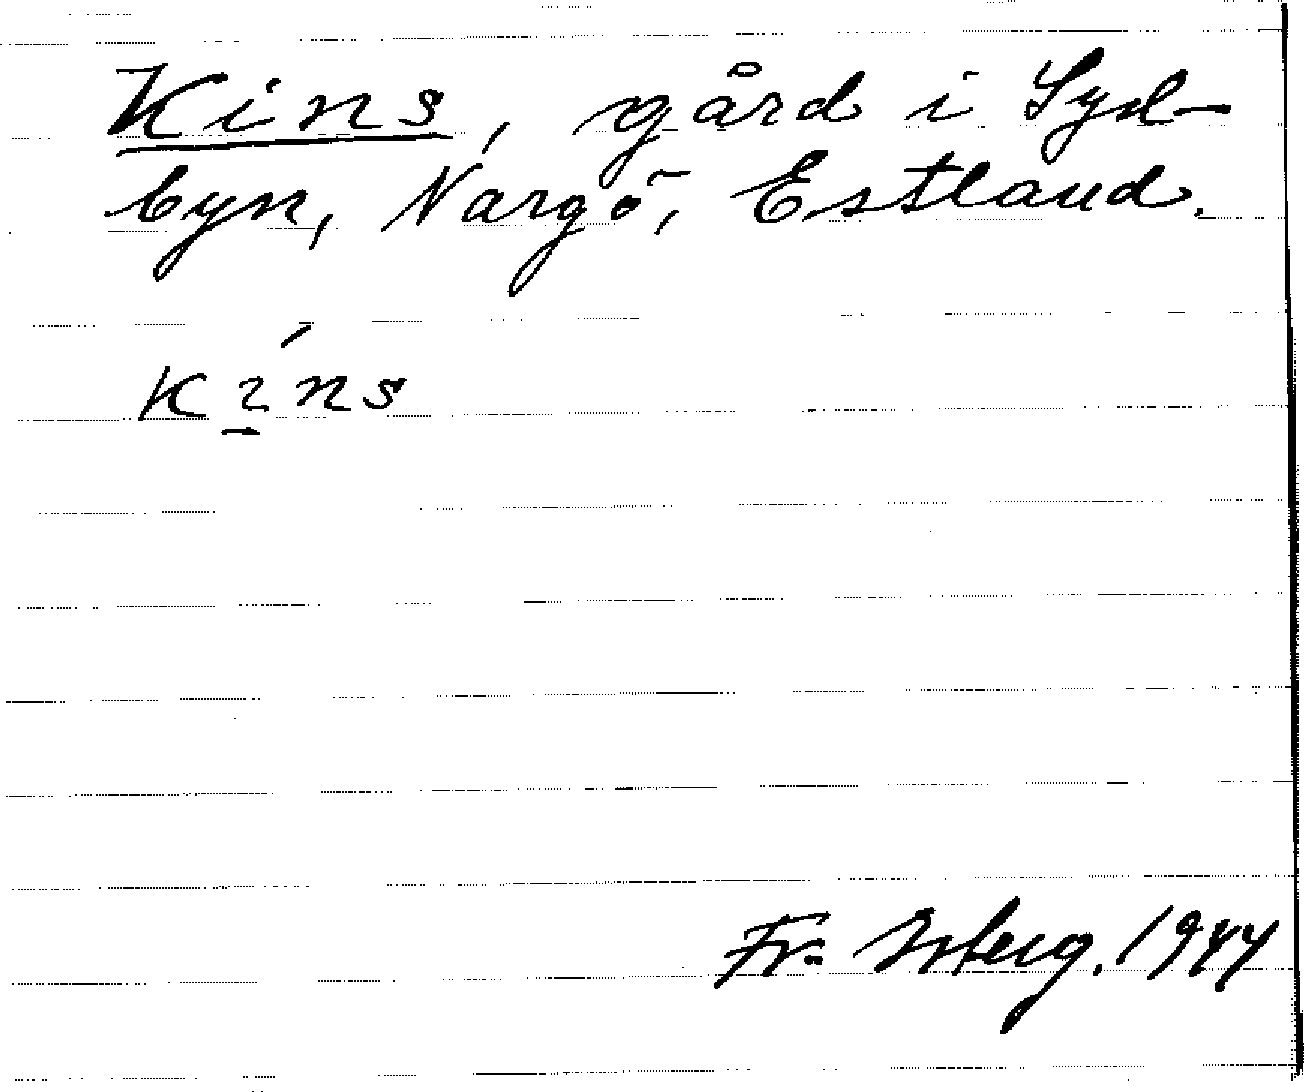 Kins, gård i Syd-
byn, Nargö, Estland.
Kins
Fr. 1944